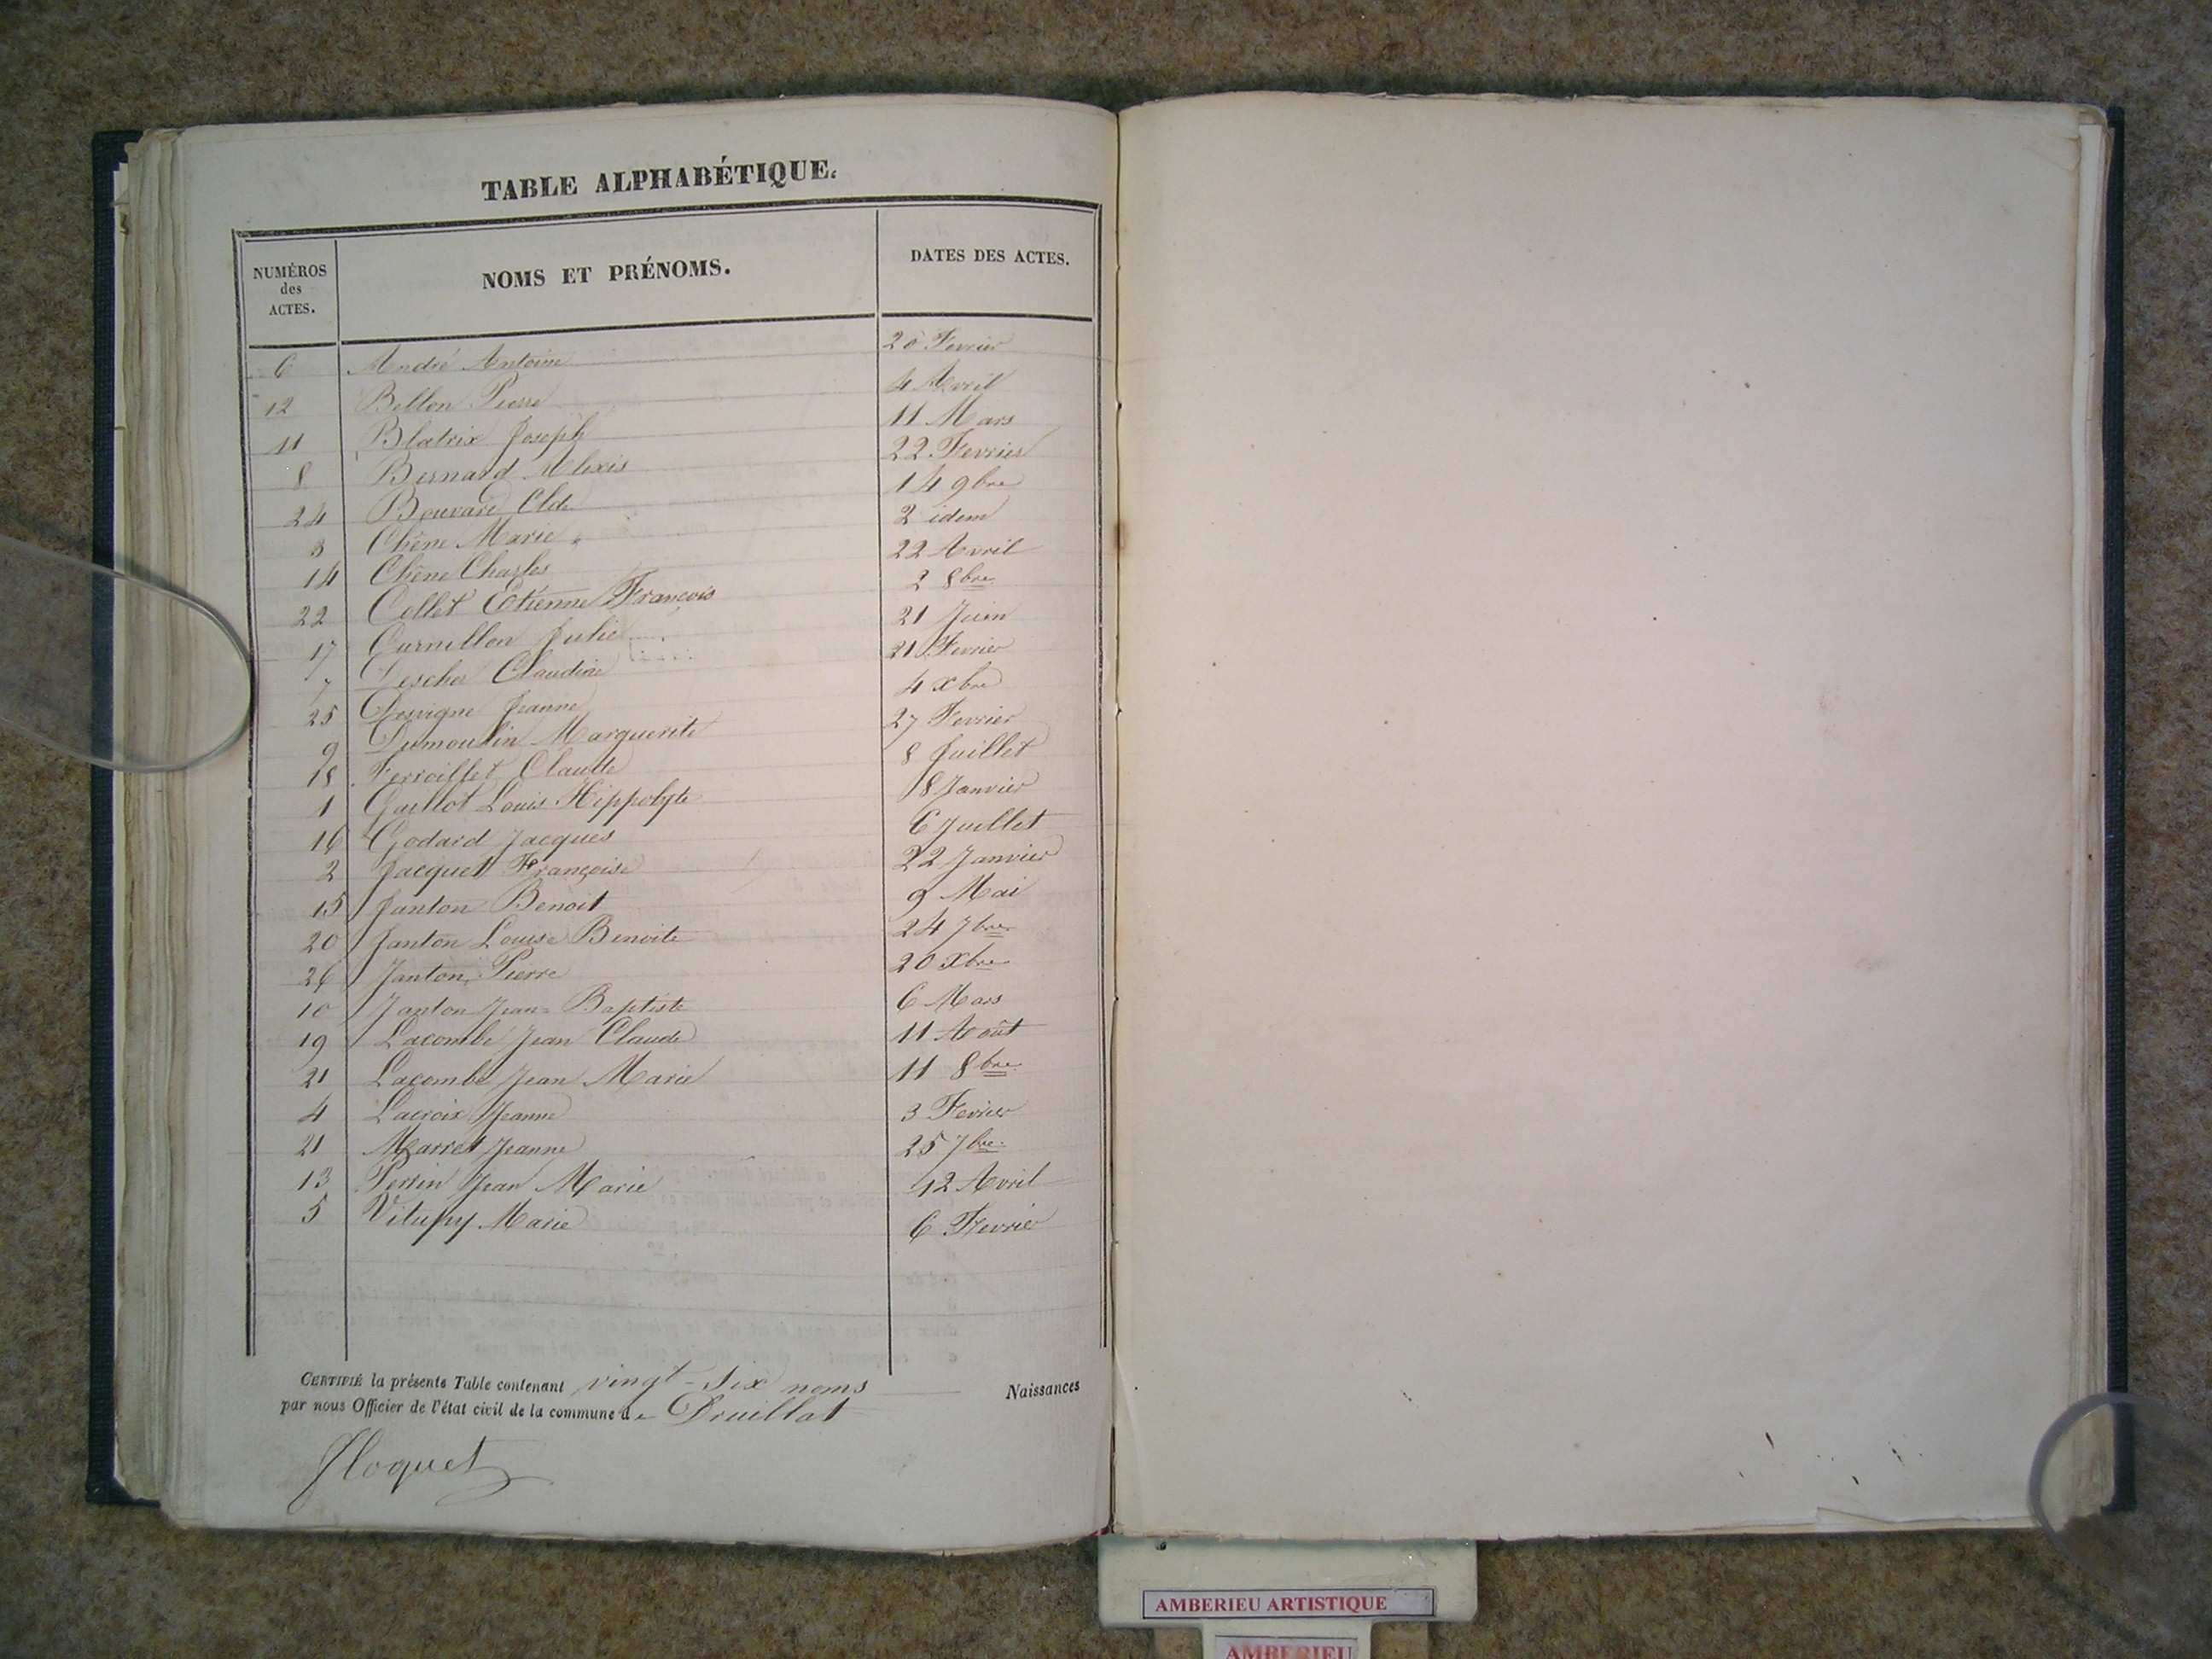 TABLE ALPHABÉTIQUE.
NUMÉROS des ACTES. NOMS ET PRÉNOMS. DATES DES ACTES.
6 André Antoine 20 Fevrier
12 Bellon Pierre 4 Avril
11 Blatrix Joseph 11 Mars
8 Bernard Alexis 22 Fevrier
24 Bouvard Clde 14 9bre
3 Chêne Marie 2 idem
14 Chêne Charles 22 Avril
22 Collet Etienne François 2 8bre
17 Curnillon Julie 21 Juin
7 Descher Claudine 21 Fevrier
25 Desvigne Jeanne 4 xbre
9 Dumoulin Marguerite 27 Fevrier
18 Ferroillet Claude 8 Juillet
1 Guillot Louis Hippolyte 18 Janvier
16 Godard Jacques 6 Juillet
2 Jacquet Françoise 22 Janvier
15 Janton Benoit 9 Mai
20 Janton Louise Benoite 24 7bre
26 Janton Pierre 20 Xbre
10 Janton Jean-Baptiste 6 Mars
19 Lacombe Jean Claude 11 Août
21 Lacombe Jean Marie 11 8bre
4 Lacroix Jeanne 3 Fevrier
21 Marret Jeanne 25 7bre
13 Perrin Jean Marie 12 Avril
5 Vitupy Marie 6 Fevrier
CERTIFIÉ la présente Table contenant vingt-six noms Naissances
par nous Officier de l'état civil de la commune de Druillat
Floquet
AMBERIEU ARTISTIQUE
AMBERIEU